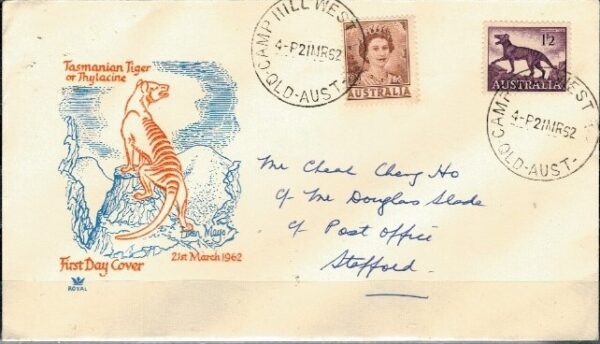 Tasmanian Tiger
or Thylacine
CAMP HILL WEST
4-P21MR62
QLD-AUST-
AUSTRALIA
1/2
AUSTRALIA
CAMP HILL WEST
4-P21MR62
QLD-AUST-
Mr Cheak Cheng Ho
c/- Mr Douglas Slade
c/- Post Office
Stafford
First Day Cover
21st March 1962
ROYAL